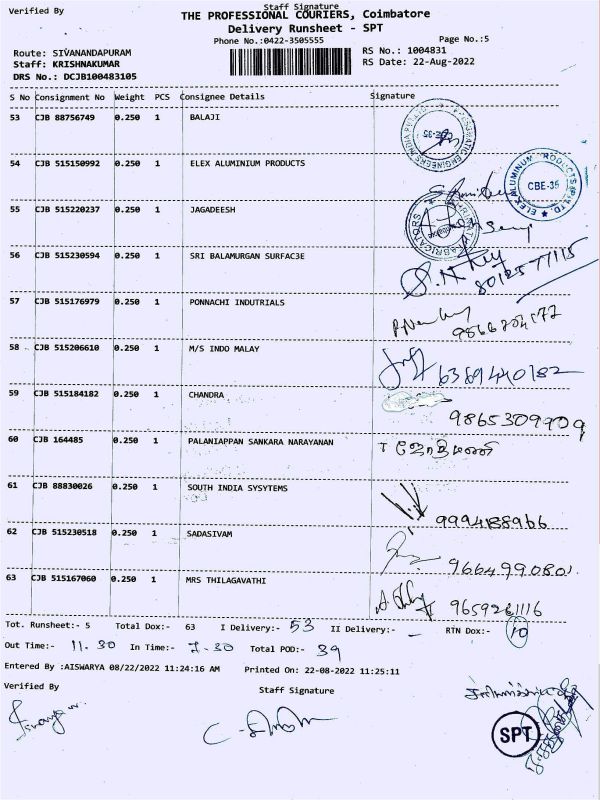 Verified By
Staff Signature
THE PROFESSIONAL COURIERS, Coimbatore
Delivery Runsheet - SPT
Phone No.:0422-3505555
Page No.:5
Route: SIVANANDAPURAM
RS No.: 1004831
Staff: KRISHNAKUMAR
RS Date: 22-Aug-2022
DRS No.: DCJB100483105
S No Consignment No Weight PCS Consignee Details Signature
53 CJB 88756749 0.250 1 BALAJI
54 CJB 515150992 0.250 1 ELEX ALUMINIUM PRODUCTS
CBE-35
55 CJB 515220237 0.250 1 JAGADEESH
56 CJB 515230594 0.250 1 SRI BALAMURGAN SURFAC3E
8012577115
57 CJB 515176979 0.250 1 PONNACHI INDUTRIALS
58 CJB 515206610 0.250 1 M/S INDO MALAY
6381440182
59 CJB 515184182 0.250 1 CHANDRA
9865309909
60 CJB 164485 0.250 1 PALANIAPPAN SANKARA NARAYANAN
61 CJB 88830026 0.250 1 SOUTH INDIA SYSYTEMS
9994188966
62 CJB 515230518 0.250 1 SADASIVAM
9664990801
63 CJB 515167060 0.250 1 MRS THILAGAVATHI
9659261116
Tot. Runsheet:- 5 Total Dox:- 63 I Delivery:- 53 II Delivery:- - RTN Dox:- 10
Out Time:- 11.30 In Time:- 7.30 Total POD:- 39
Entered By :AISWARYA 08/22/2022 11:24:16 AM Printed On: 22-08-2022 11:25:11
Verified By
Staff Signature
SPT